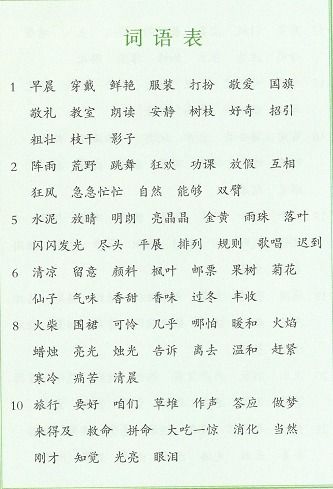 词语表
1 早晨 穿戴 鲜艳 服装 打扮 敬爱 国旗
敬礼 教室 朗读 安静 树枝 好奇 招引
粗壮 枝干 影子
2 阵雨 荒野 跳舞 狂欢 功课 放假 互相
狂风 急急忙忙 自然 能够 双臂
5 水泥 放晴 明朗 亮晶晶 金黄 雨珠 落叶
闪闪发光 尽头 平展 排列 规则 歌唱 迟到
6 清凉 留意 颜料 枫叶 邮票 果树 菊花
仙子 气味 香甜 香味 过冬 丰收
8 火柴 围裙 可怜 几乎 哪怕 暖和 火焰
蜡烛 亮光 烛光 告诉 离去 温和 赶紧
寒冷 痛苦 清晨
10 旅行 要好 咱们 草堆 作声 答应 做梦
来得及 救命 拼命 大吃一惊 消化 当然
刚才 知觉 光亮 眼泪